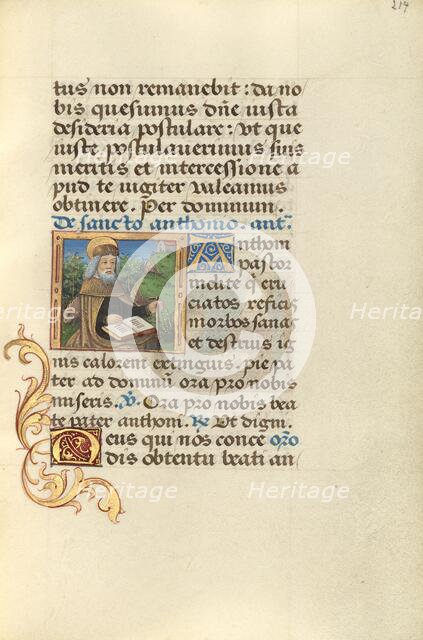 214
tus non remanebit: da no
bis quesumus dñe iusta
desideria postulare: Ut que
iuste postulauerimus suis
meritis et intercessione a
pud te iugiter ualeamus
obtinere. Per dominum.
De sancto anthonio. ant̃.
Anthoni
pastor
inclite q̃ cru
ciatos reficis
morbos sanas
et destruis ig
nis calorem extinguis. pie pa
ter ad dominũ ora pro nobis
miseris. ℣. Ora pro nobis bea
te pater anthoni. ℟. Ut digni.
Deus qui nos conce orõ
dis obtentu beati an
Heritage